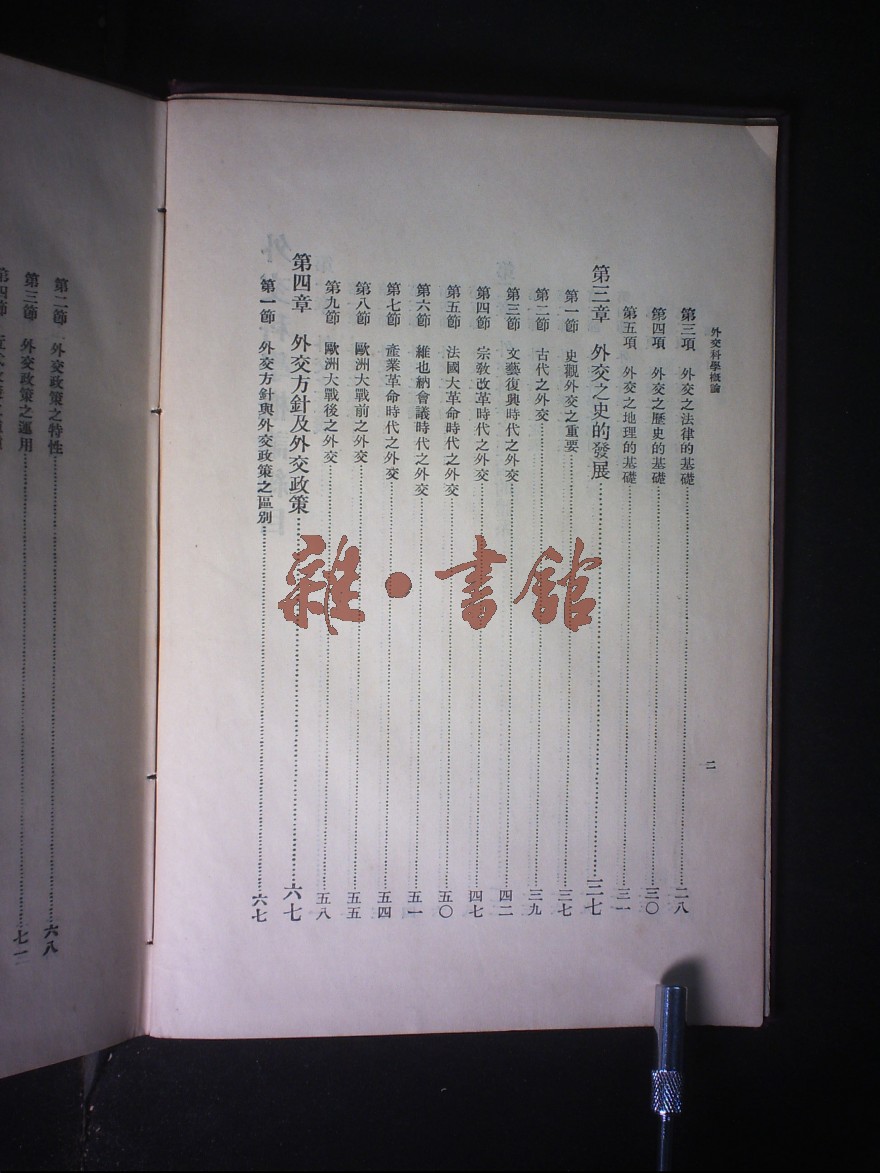 外交科學概論
二
第三項 外交之法律的基礎………二八
第四項 外交之歷史的基礎………三〇
第五項 外交之地理的基礎………三一
第三章 外交之史的發展………三七
第一節 史觀外交之重要………三七
第二節 古代之外交………三九
第三節 文藝復興時代之外交………四二
第四節 宗教改革時代之外交………四七
第五節 法國大革命時代之外交………五〇
第六節 維也納會議時代之外交………五一
第七節 產業革命時代之外交………五四
第八節 歐洲大戰前之外交………五五
第九節 歐洲大戰後之外交………五八
第四章 外交方針及外交政策………六七
第一節 外交方針與外交政策之區別………六七
第二節 外交政策之特性………六八
第三節 外交政策之運用………七一
第四節
雜·書館